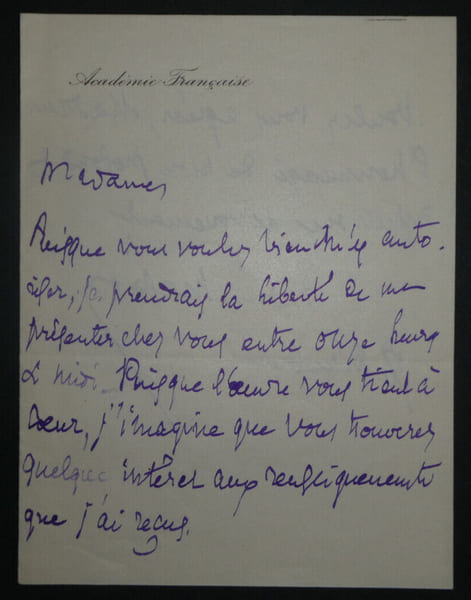 Académie Française
Madame,
Puisque vous voulez bien m'y auto-
riser, je prendrais la liberté de me
présenter chez vous entre onze heures
& midi. Puisque l'œuvre vous tient à
cœur, j'imagine que vous trouverez
quelque intérêt aux renseignements
que j'ai reçus.